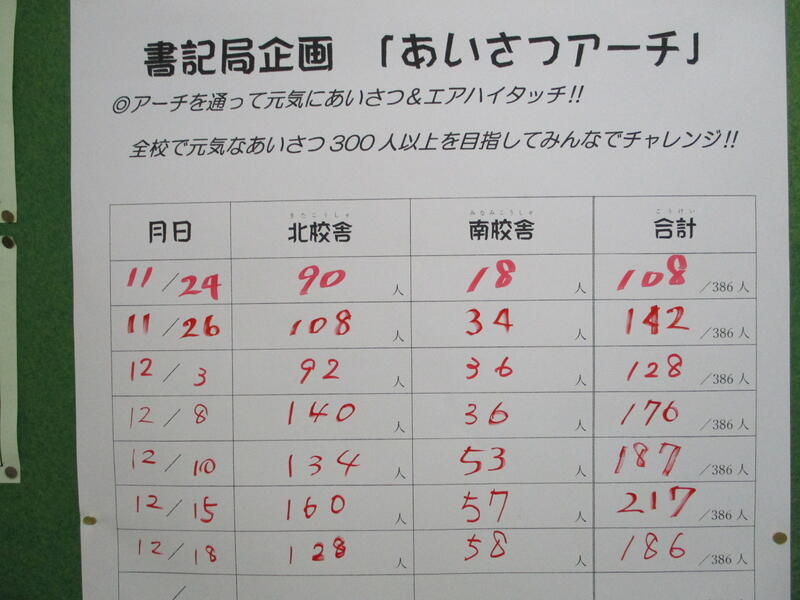 書記局企画 「あいさつアーチ」
◎アーチを通って元気にあいさつ&エアハイタッチ!!
全校で元気なあいさつ300人以上を目指してみんなでチャレンジ!!
きたこうしゃ みなみこうしゃ ごうけい
月日 北校舎 南校舎 合計
11/24 90人 18人 108/386人
11/26 108人 34人 142/386人
12/3 92人 36人 128/386人
12/8 140人 36人 176/386人
12/10 134人 53人 187/386人
12/15 160人 57人 217/386人
12/18 128人 58人 186/386人
/